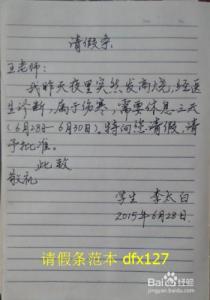 请假条
王老师:
我昨天夜里突然发高烧,经医
生诊断,属于伤寒,需要休息三天
(6月28日—6月30日)。特向您请假,请
予批准。
此致
敬礼
学生 李太白
2015年6月28日
请假条范本 dfx127
Baidu经验